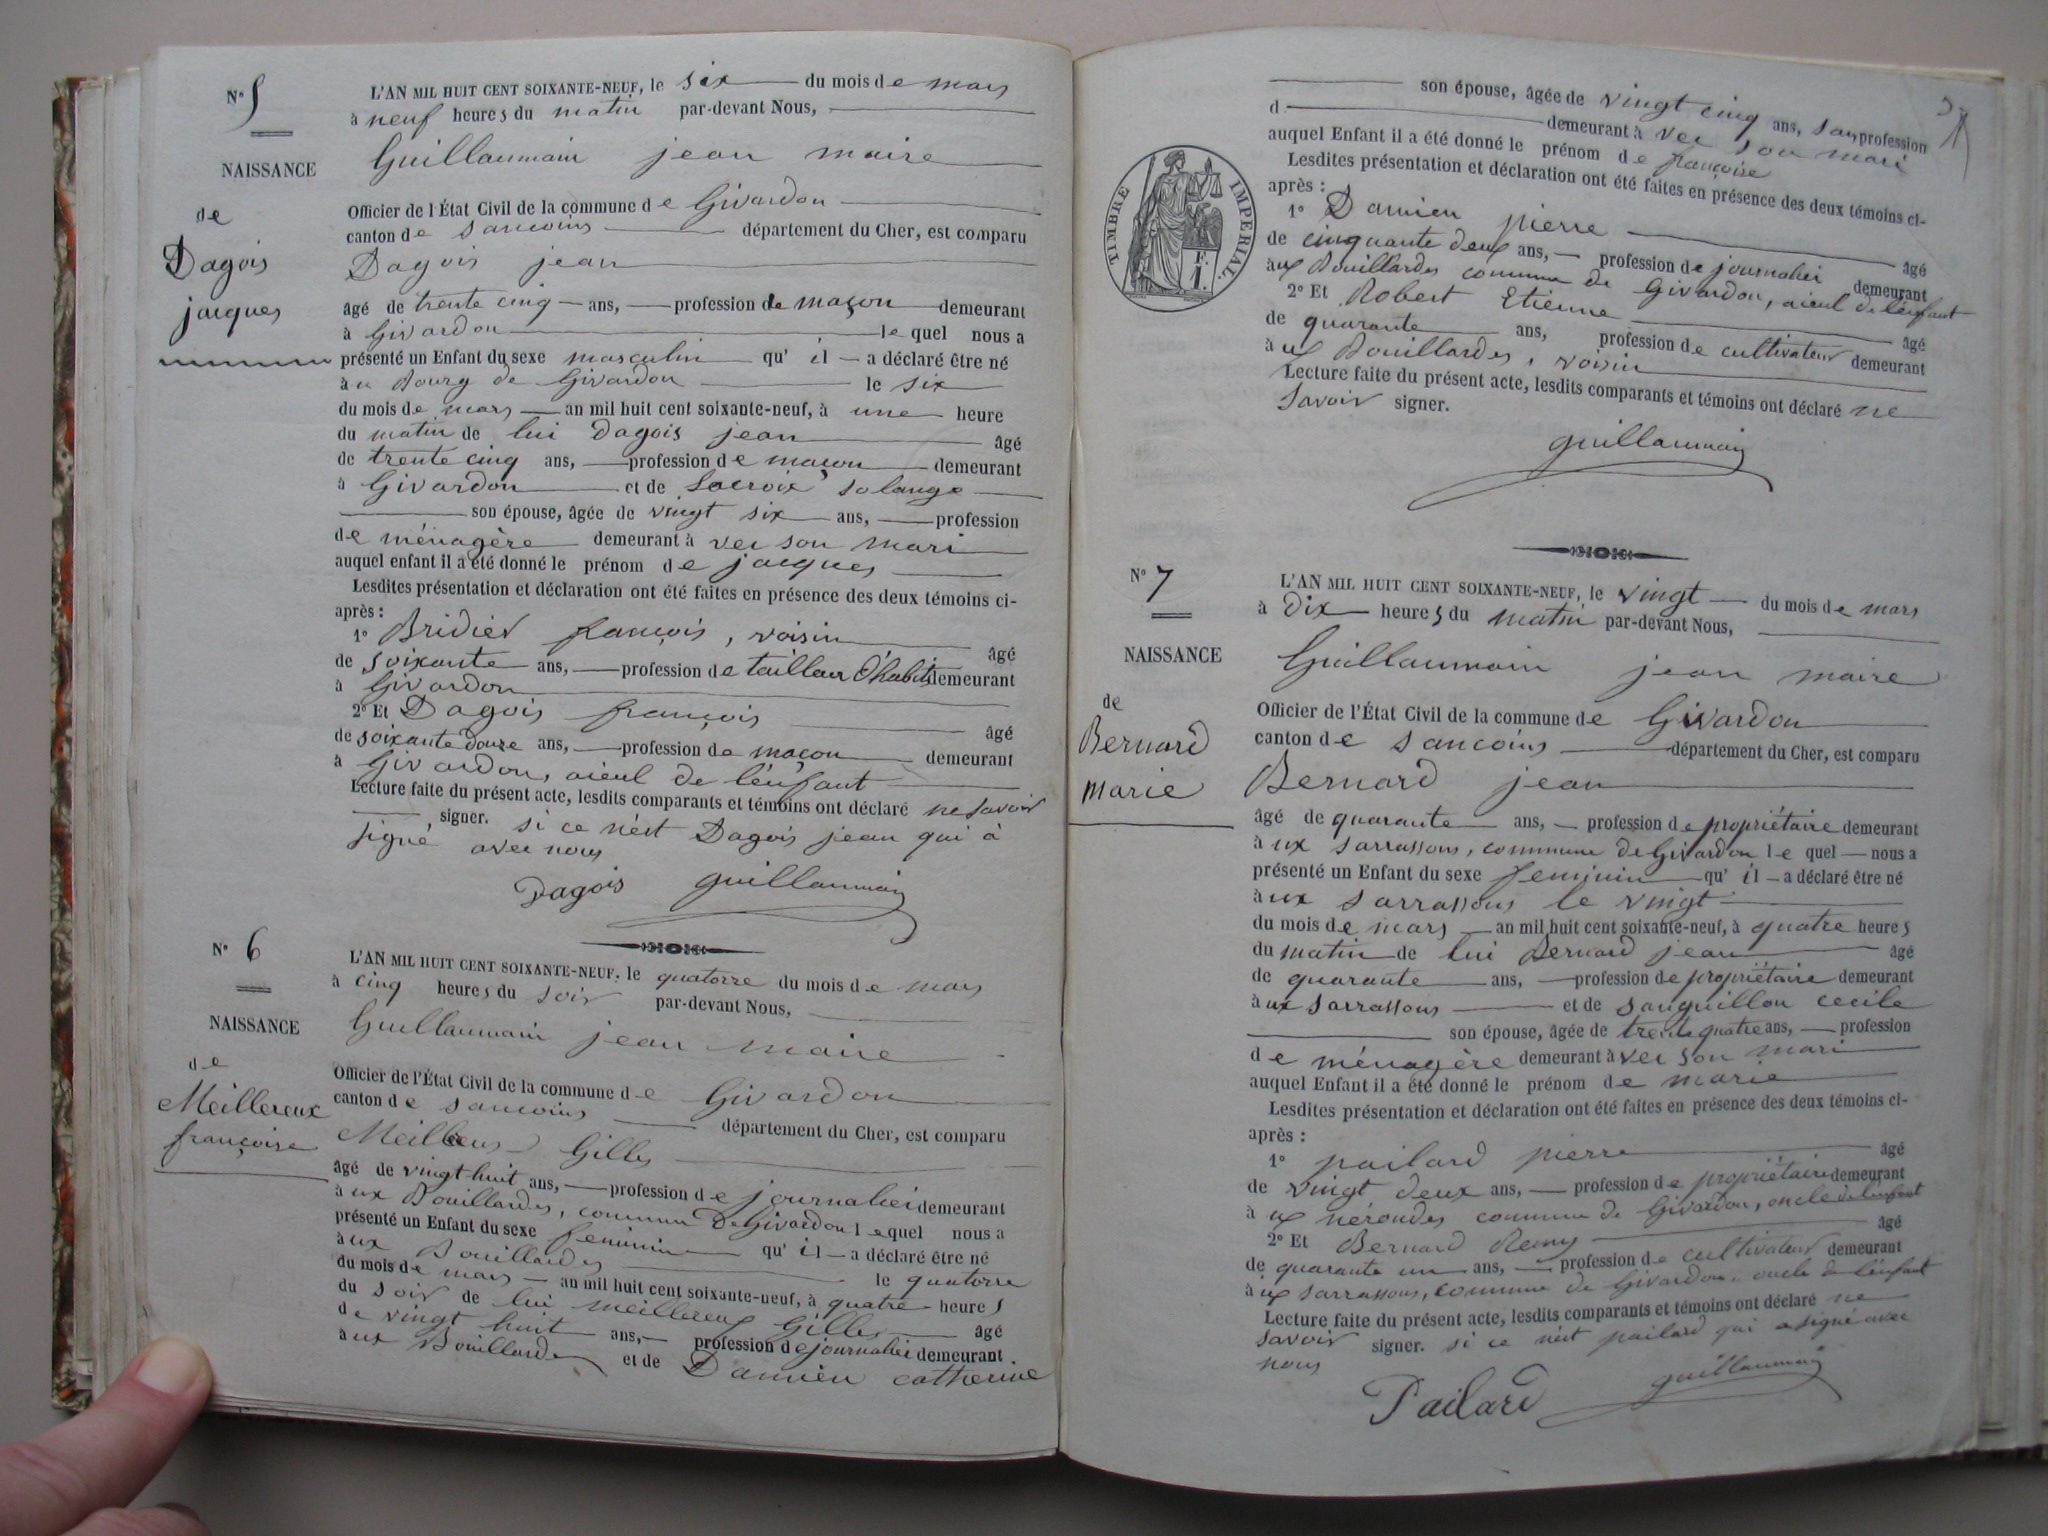 N° 5
NAISSANCE
de
Dagois
jacques
L'AN MIL HUIT CENT SOIXANTE-NEUF, le six du mois de mars
à neuf heures du matin par-devant Nous,
Guillaumain jean maire
Officier de l'État Civil de la commune de Givardon
canton de Sancoins département du Cher, est comparu
Dagois jean
âgé de trente cinq ans, profession de maçon demeurant
à Givardon lequel nous a
présenté un Enfant du sexe masculin qu'il a déclaré être né
au Bourg de Givardon le six
du mois de mars an mil huit cent soixante-neuf, à une heure
du matin de lui Dagois jean âgé
de trente cinq ans, profession de maçon demeurant
à Givardon et de Lacroix Solange
son épouse, âgée de vingt six ans, profession
de ménagère demeurant à vec son mari
auquel enfant il a été donné le prénom de jacques
Lesdites présentation et déclaration ont été faites en présence des deux témoins ci-
après :
1° Bridier françois, voisin âgé
de soixante ans, profession de tailleur d'habits demeurant
à Givardon
2° Et Dagois françois âgé
de soixante douze ans, profession de maçon demeurant
à Givardon, aieul de l'enfant
Lecture faite du présent acte, lesdits comparants et témoins ont déclaré ne savoir
signer. si ce n'est Dagois jean qui à
signé avec nous
Dagois guillaumain
N° 6
NAISSANCE
de
Meillereux
françoise
L'AN MIL HUIT CENT SOIXANTE-NEUF, le quatorze du mois de mars
à cinq heures du soir par-devant Nous,
Guillaumain jean maire
Officier de l'État Civil de la commune de Givardon
canton de Sancoins département du Cher, est comparu
Gilles
âgé de vingt huit ans, profession de journalier demeurant
aux Bouillardes, commune de Givardon lequel nous a
présenté un Enfant du sexe feminin qu'il a déclaré être né
aux Bouillardes le quatorze
du mois de mars an mil huit cent soixante-neuf, à quatre heures
du soir de lui meillereux Gilles âgé
de vingt huit ans, profession de journalier demeurant
aux Bouillardes et de Damien catherine
son épouse, âgée de vingt cinq ans, sans profession
d demeurant à vec son mari
auquel Enfant il a été donné le prénom de françoise
Lesdites présentation et déclaration ont été faites en présence des deux témoins ci-
après :
1° Damien pierre âgé
de cinquante deux ans, profession de journalier demeurant
aux Bouillardes commune de Givardon, aieul de l'enfant
2° Et Robert Etienne âgé
de quarante ans, profession de cultivateur demeurant
aux Bouillardes, voisin
Lecture faite du présent acte, lesdits comparants et témoins ont déclaré ne
savoir signer.
guillaumain
TIMBRE IMPERIAL
1 F.
N° 7
NAISSANCE
de
Bernard
Marie
L'AN MIL HUIT CENT SOIXANTE-NEUF, le vingt du mois de mars
à dix heures du matin par-devant Nous,
Guillaumain jean maire
Officier de l'État Civil de la commune de Givardon
canton de Sancoins département du Cher, est comparu
Bernard jean
âgé de quarante ans, profession de propriétaire demeurant
aux sarrassons, commune de Givardon lequel nous a
présenté un Enfant du sexe feminin qu'il a déclaré être né
aux sarrassons le vingt
du mois de mars an mil huit cent soixante-neuf, à quatre heures
du matin de lui Bernard jean âgé
de quarante ans, profession de propriétaire demeurant
aux sarrassons et de sanguillon cecile
son épouse, âgée de trente quatre ans, profession
de ménagère demeurant à vec son mari
auquel Enfant il a été donné le prénom de marie
Lesdites présentation et déclaration ont été faites en présence des deux témoins ci-
après :
1° pailard pierre âgé
de vingt deux ans, profession de propriétaire demeurant
aux nérondes commune de Givardon, oncle de l'enfant
2° Et Bernard Remy âgé
de quarante un ans, profession de cultivateur demeurant
aux sarrassons, commune de Givardon, oncle de l'enfant
Lecture faite du présent acte, lesdits comparants et témoins ont déclaré ne
savoir signer. si ce n'est pailard qui a signé avec
nous
Pailard guillaumain